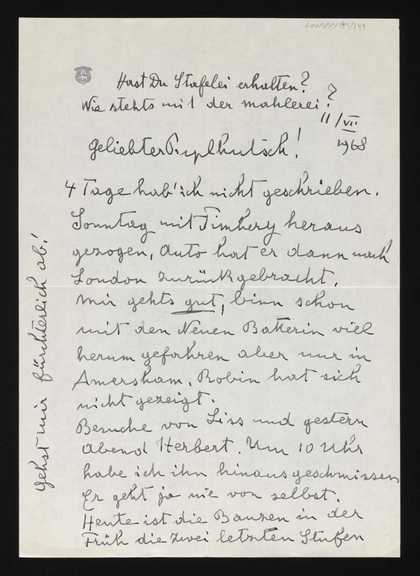 Hast Du Stafelei erhalten?
Wie stehts mit der mahlerei?
11/VII
1968
Geliebter
4 Tage hab' ich nicht geschrieben.
Sonntag mit Timkery heraus
gezogen, Auto hat er dann nach
London zurückgebracht.
Mir gehts gut, binn schon
mit den Neuen Batterin viel
herum gefahren aber nur in
Amersham. Robin hat sich
nicht gezeigt.
Besuche von Liss und gestern
Abend Herbert. Um 10 Uhr
habe ich ihn hinausgeschmissen
Er geht ja nie von selbst.
Heute ist die in der
Früh die zwei letzten Stufen
Gehst mir fürchterlich ab!